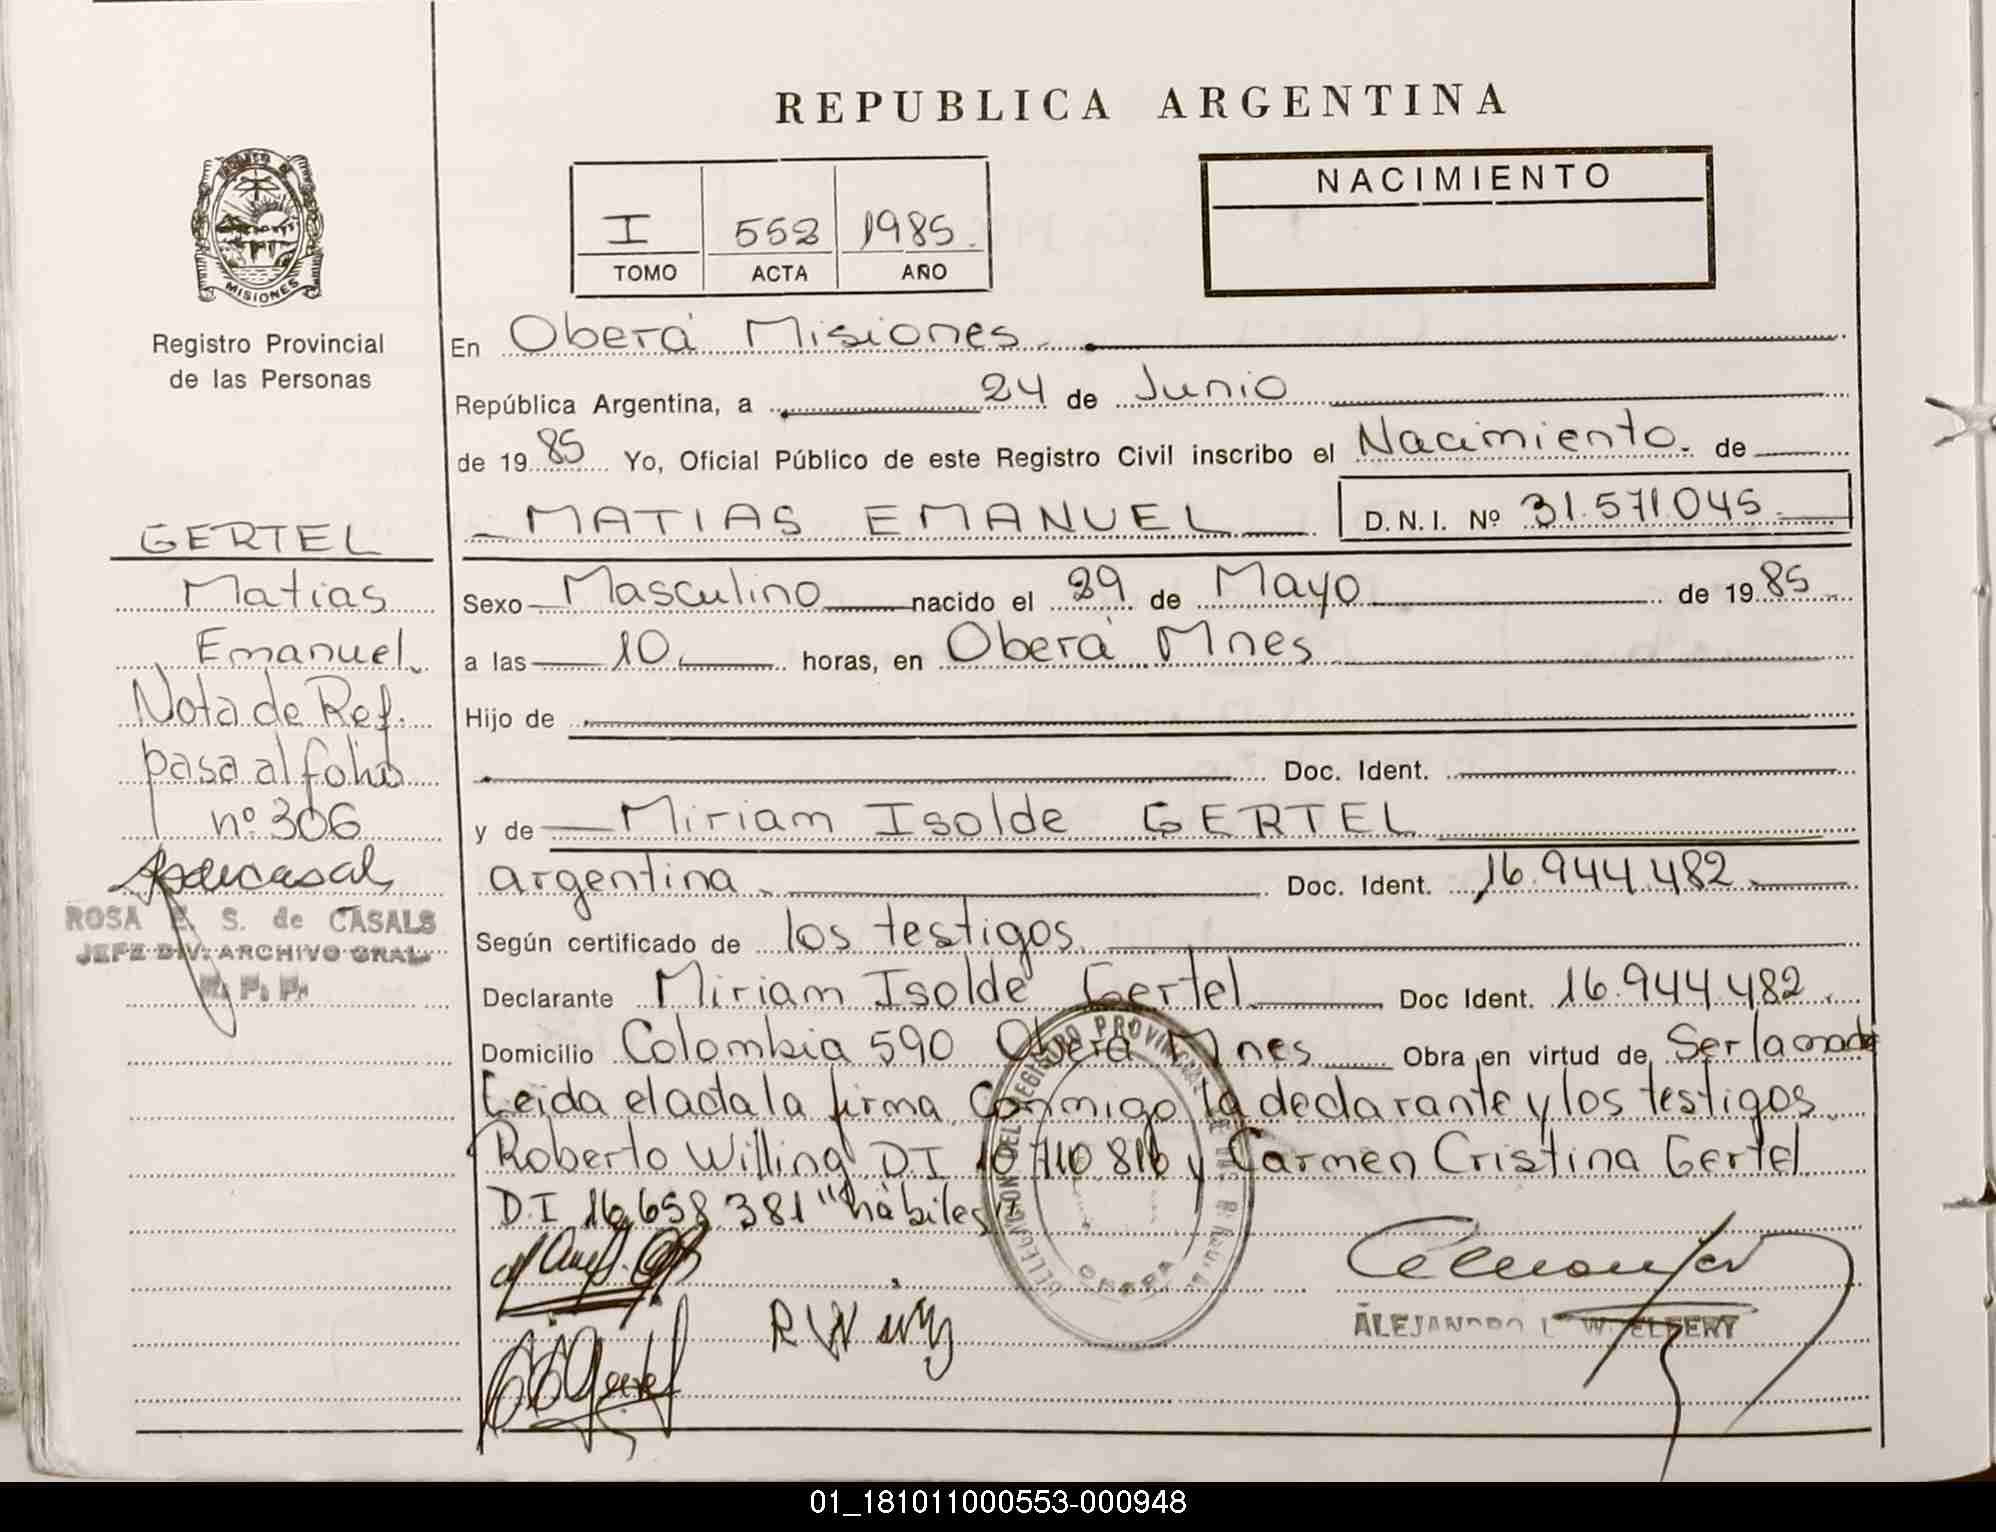 REPUBLICA ARGENTINA
MISIONES
Registro Provincial
de las Personas
I 552 1985.
TOMO ACTA AÑO
NACIMIENTO
En Oberá Misiones.
República Argentina, a 24 de Junio
de 1985 Yo, Oficial Público de este Registro Civil inscribo el Nacimiento. de
MATIAS EMANUEL D.N.I. Nº 31.571.045
GERTEL
Matias
Emanuel.
Nota de Ref.
pasa al folio
nº 306
ROSA E. S. de CASALS
JEFE DIV. ARCHIVO GRAL.
R. P. P.
Sexo Masculino nacido el 29 de Mayo de 1985
a las 10 horas, en Oberá Mnes
Hijo de
Doc. Ident.
y de Miriam Isolde GERTEL
argentina. Doc. Ident. 16.944.482
Según certificado de los testigos
Declarante Miriam Isolde Gertel Doc Ident. 16.944.482.
Domicilio Colombia 590 Oberá Mnes Obra en virtud de Ser la madre
Leida el acta la firma Conmigo la declarante y los testigos
Roberto Willing D.I 10 710 816 y Carmen Cristina Gertel
D.I 16.658.381 "hábiles"
REGISTRO PROVINCIAL DE LAS
OBERA
ALEJANDRO L. W. ELFERT
01_181011000553-000948